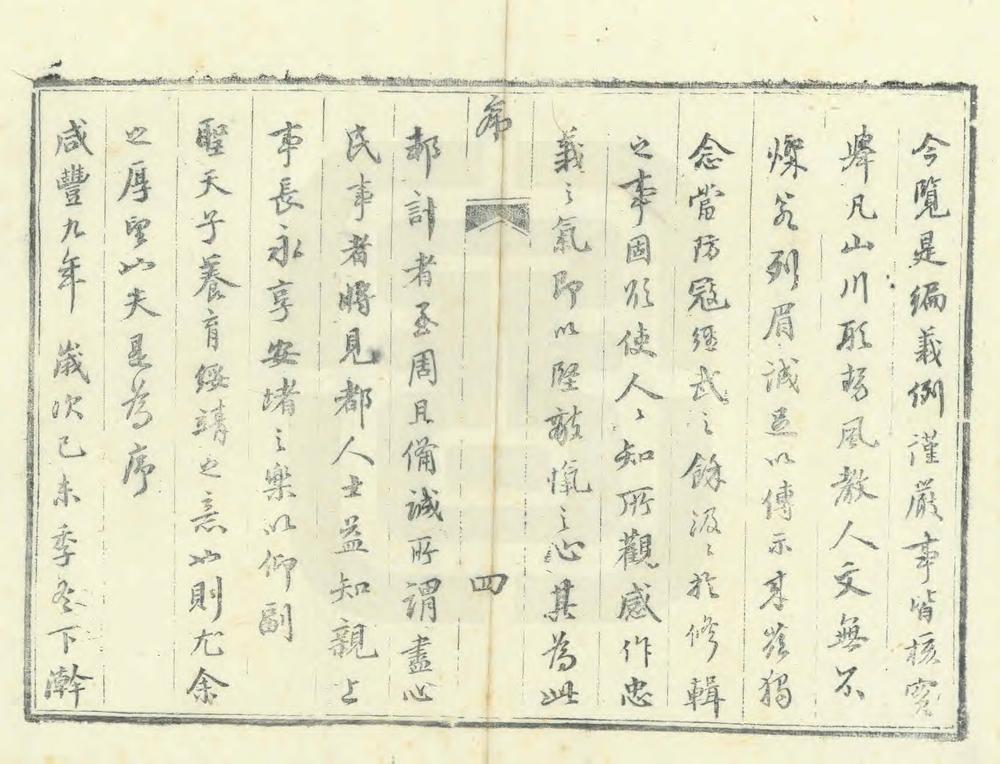 今覽是編義例謹嚴事皆核實
犖凡山川形勢風教人文無不
燦若列眉誠足以傳示來茲獨
念當防寇經武之餘汲〻於修輯
之事固欲使人〻知所觀感作忠
義之氣即以堅敵愾之心其為此
序
四
邦計者至周且備誠所謂盡心
民事者將見都人士益知親上
事長永享安堵之樂以仰副
聖天子養育綏靖之意也則尤余
之厚望也夫是為序
咸豐九年歲次己未季冬下澣